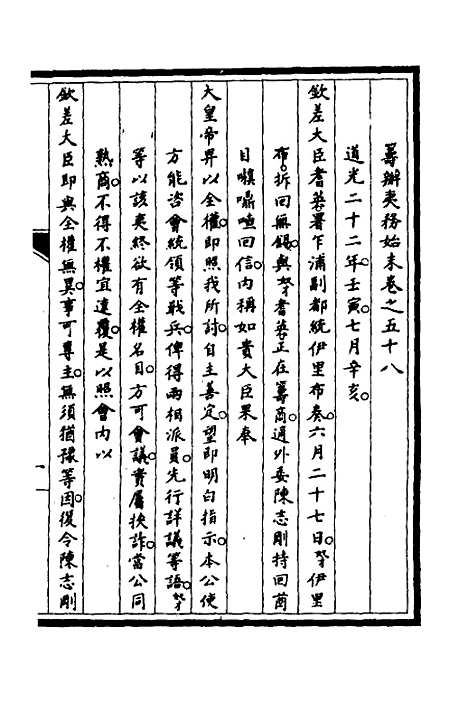 籌辦夷務始末卷之五十八
道光二十二年。壬寅。七月辛亥。
欽差大臣耆英署乍浦副都統伊里布奏。六月二十七日。奴才伊里
布。拆回無錫。與奴才耆英正在籌商。適外委陳志剛持回𠸄
目㗎囌喳回信。內稱如貴大臣果奉
大皇帝畀以全權。即照我所討。自主善定。望即明白指示。本公使
方能咨會統領等戢兵。俾得兩相派員。先行詳議等語。奴才
等以該夷終欲有全權名目。方可會議。實屬挾詐。當公同
熟商。不得不權宜速覆。是以照會內以
欽差大臣即與全權無異。事可專主。無須猶豫等因。復令陳志剛